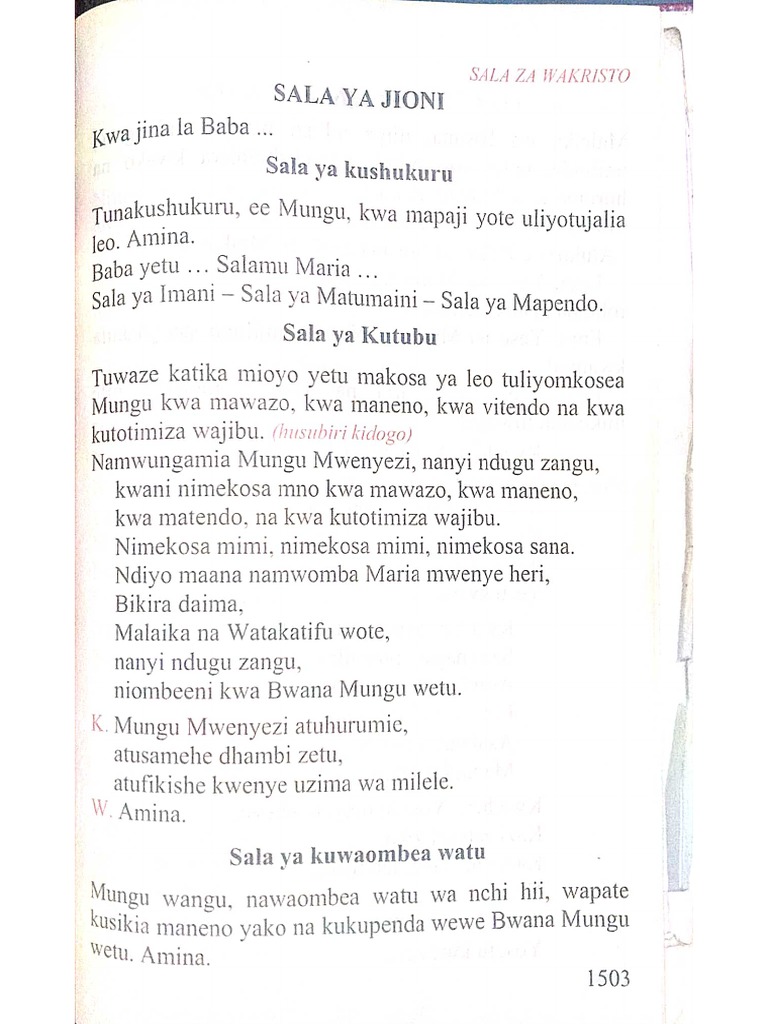 SALA ZA WAKRISTO
SALA YA JIONI
Kwa jina la Baba ...
Sala ya kushukuru
Tunakushukuru, ee Mungu, kwa mapaji yote uliyotujalia
leo. Amina.
Baba yetu ... Salamu Maria ...
Sala ya Imani – Sala ya Matumaini – Sala ya Mapendo.
Sala ya Kutubu
Tuwaze katika mioyo yetu makosa ya leo tuliyomkosea
Mungu kwa mawazo, kwa maneno, kwa vitendo na kwa
kutotimiza wajibu. (husubiri kidogo)
Namwungamia Mungu Mwenyezi, nanyi ndugu zangu,
kwani nimekosa mno kwa mawazo, kwa maneno,
kwa matendo, na kwa kutotimiza wajibu.
Nimekosa mimi, nimekosa mimi, nimekosa sana.
Ndiyo maana namwomba Maria mwenye heri,
Bikira daima,
Malaika na Watakatifu wote,
nanyi ndugu zangu,
niombeeni kwa Bwana Mungu wetu.
K. Mungu Mwenyezi atuhurumie,
atusamehe dhambi zetu,
atufikishe kwenye uzima wa milele.
W. Amina.
Sala ya kuwaombea watu
Mungu wangu, nawaombea watu wa nchi hii, wapate
kusikia maneno yako na kukupenda wewe Bwana Mungu
wetu. Amina.
1503